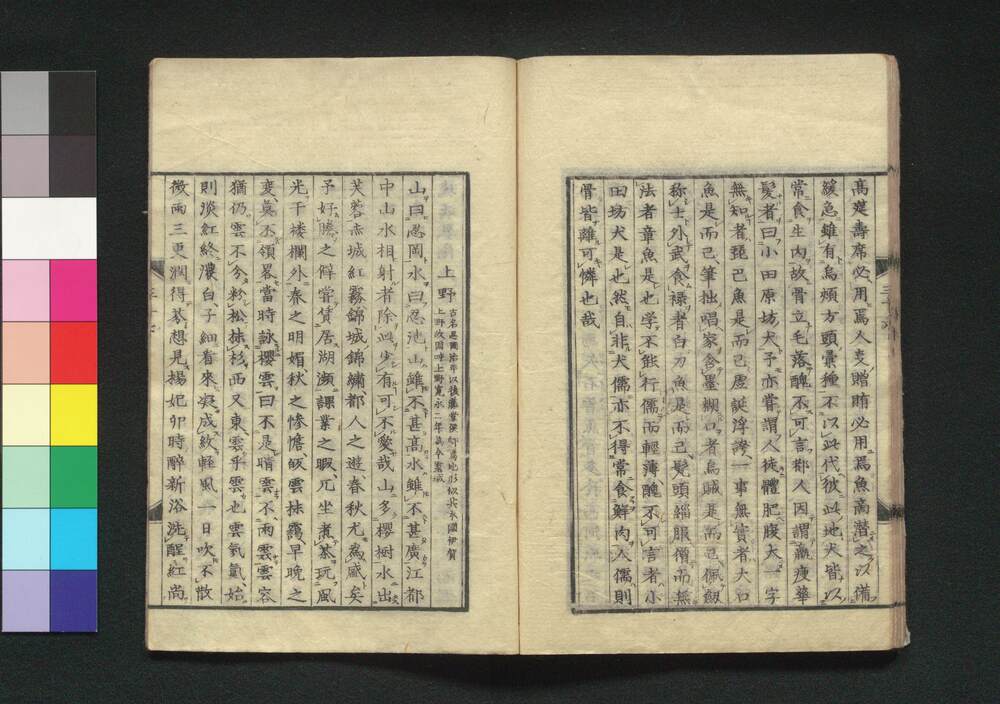 高筵壽席必用焉人交贈賄必用焉魚商潜之以備
緩急雖有烏頰方頭彙種不以此代彼此地犬皆以
常食生肉故骨立毛落醜不可言都人因謂羸瘦華
髪者曰小田原坊犬予亦嘗謂人徒體肥腹大一字
無知者琵巴魚是而已虚誕浮誇一事無實者大口
魚是而已筆拙唱家含墨糊口者烏賊是而已佩劔
稱士外武食禄者白刃魚是而已髡頭緇服僧而無
法者章魚是也学不能行儒而輕薄醜不可言者小
田坊犬是也然自非犬儒亦不得常食鮮肉人儒則
骨皆離可憐也哉
上野
山曰忍岡水曰忍池山雖不甚高水雖不甚廣江都
中山水相射者除此失有可不愛哉山多櫻樹水出
芙蓉赤城紅霧錦城錦繍都人之遊春秋尤為盛矣
予好勝之僻嘗賃居湖瀕課業之暇兀坐煮茶玩風
光于楼欄外春之明媚秋之惨憺皈雲抹靄早晩之
変莫不領畧當時詠櫻雲曰不是晴雲不雨雲雲容
猶仍雲不分粉松抹杉西又東雲乎雲也雲氣氤始
則淡紅終濃白子細看來凝成紋輕風一日吹不散
微雨三更潤得葐想見楊妃卯時醉新浴洗醒紅尚